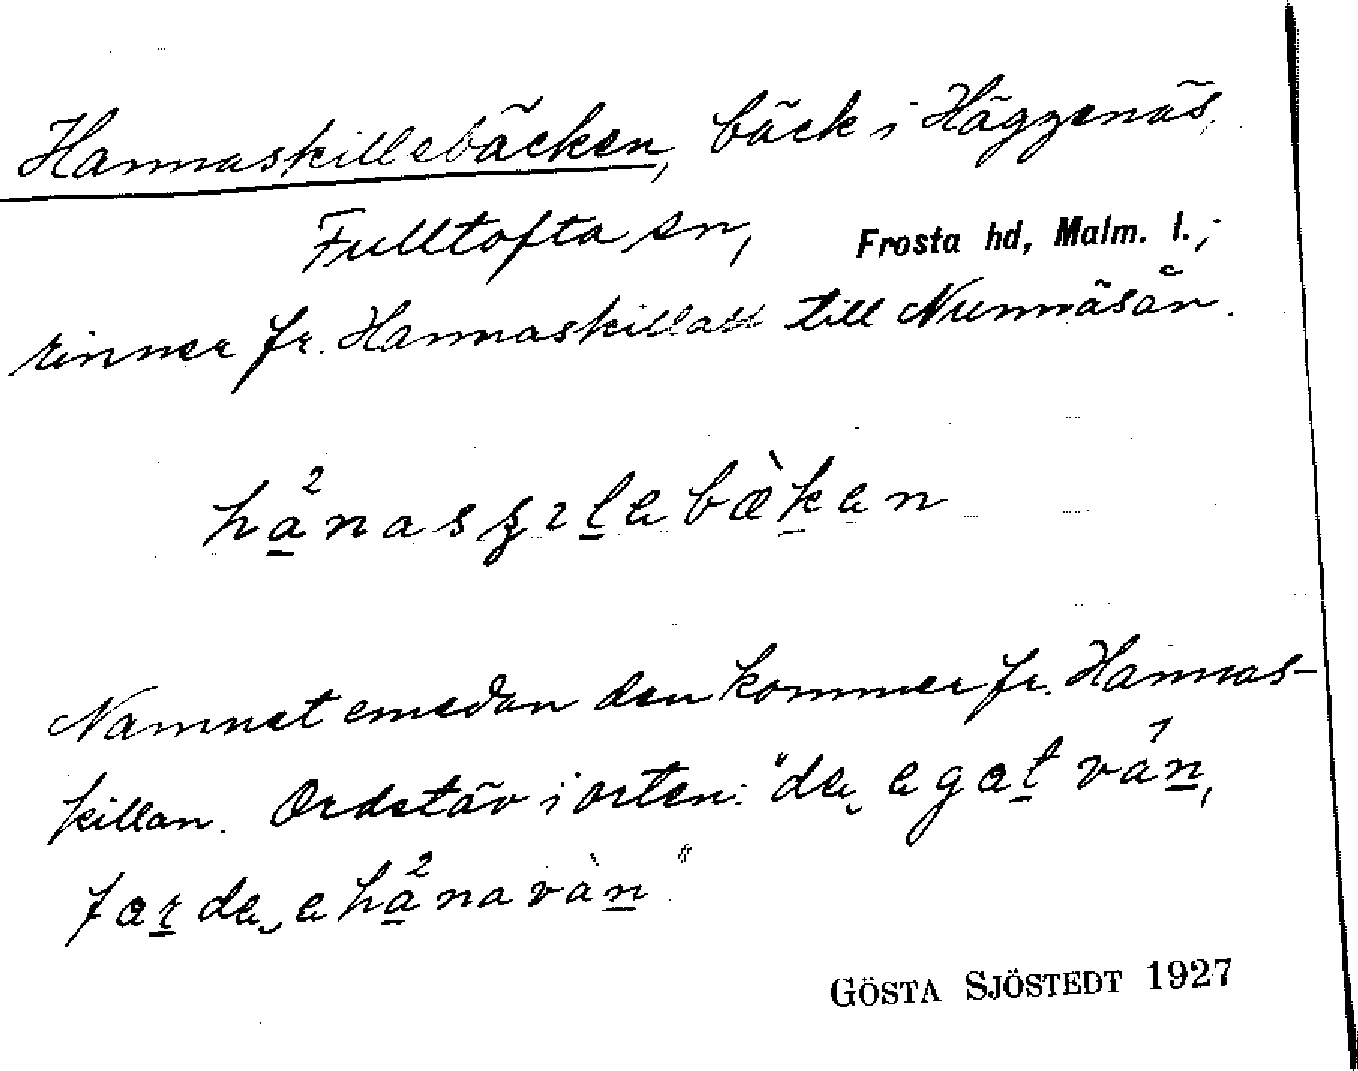 Hannaskillebäcken, bäck i Häggenäs,
Fulltofta sn, Frosta hd, Malm. l.;
rinner fr. Hannaskillan till Nunnäsån.
hånasʒɪlebæken
Namnet emedan den kommer fr. Hannas-
killan. Ordstäv i orten: "de e gæt van,
fær de e hanavan"
GÖSTA SJÖSTEDT 1927